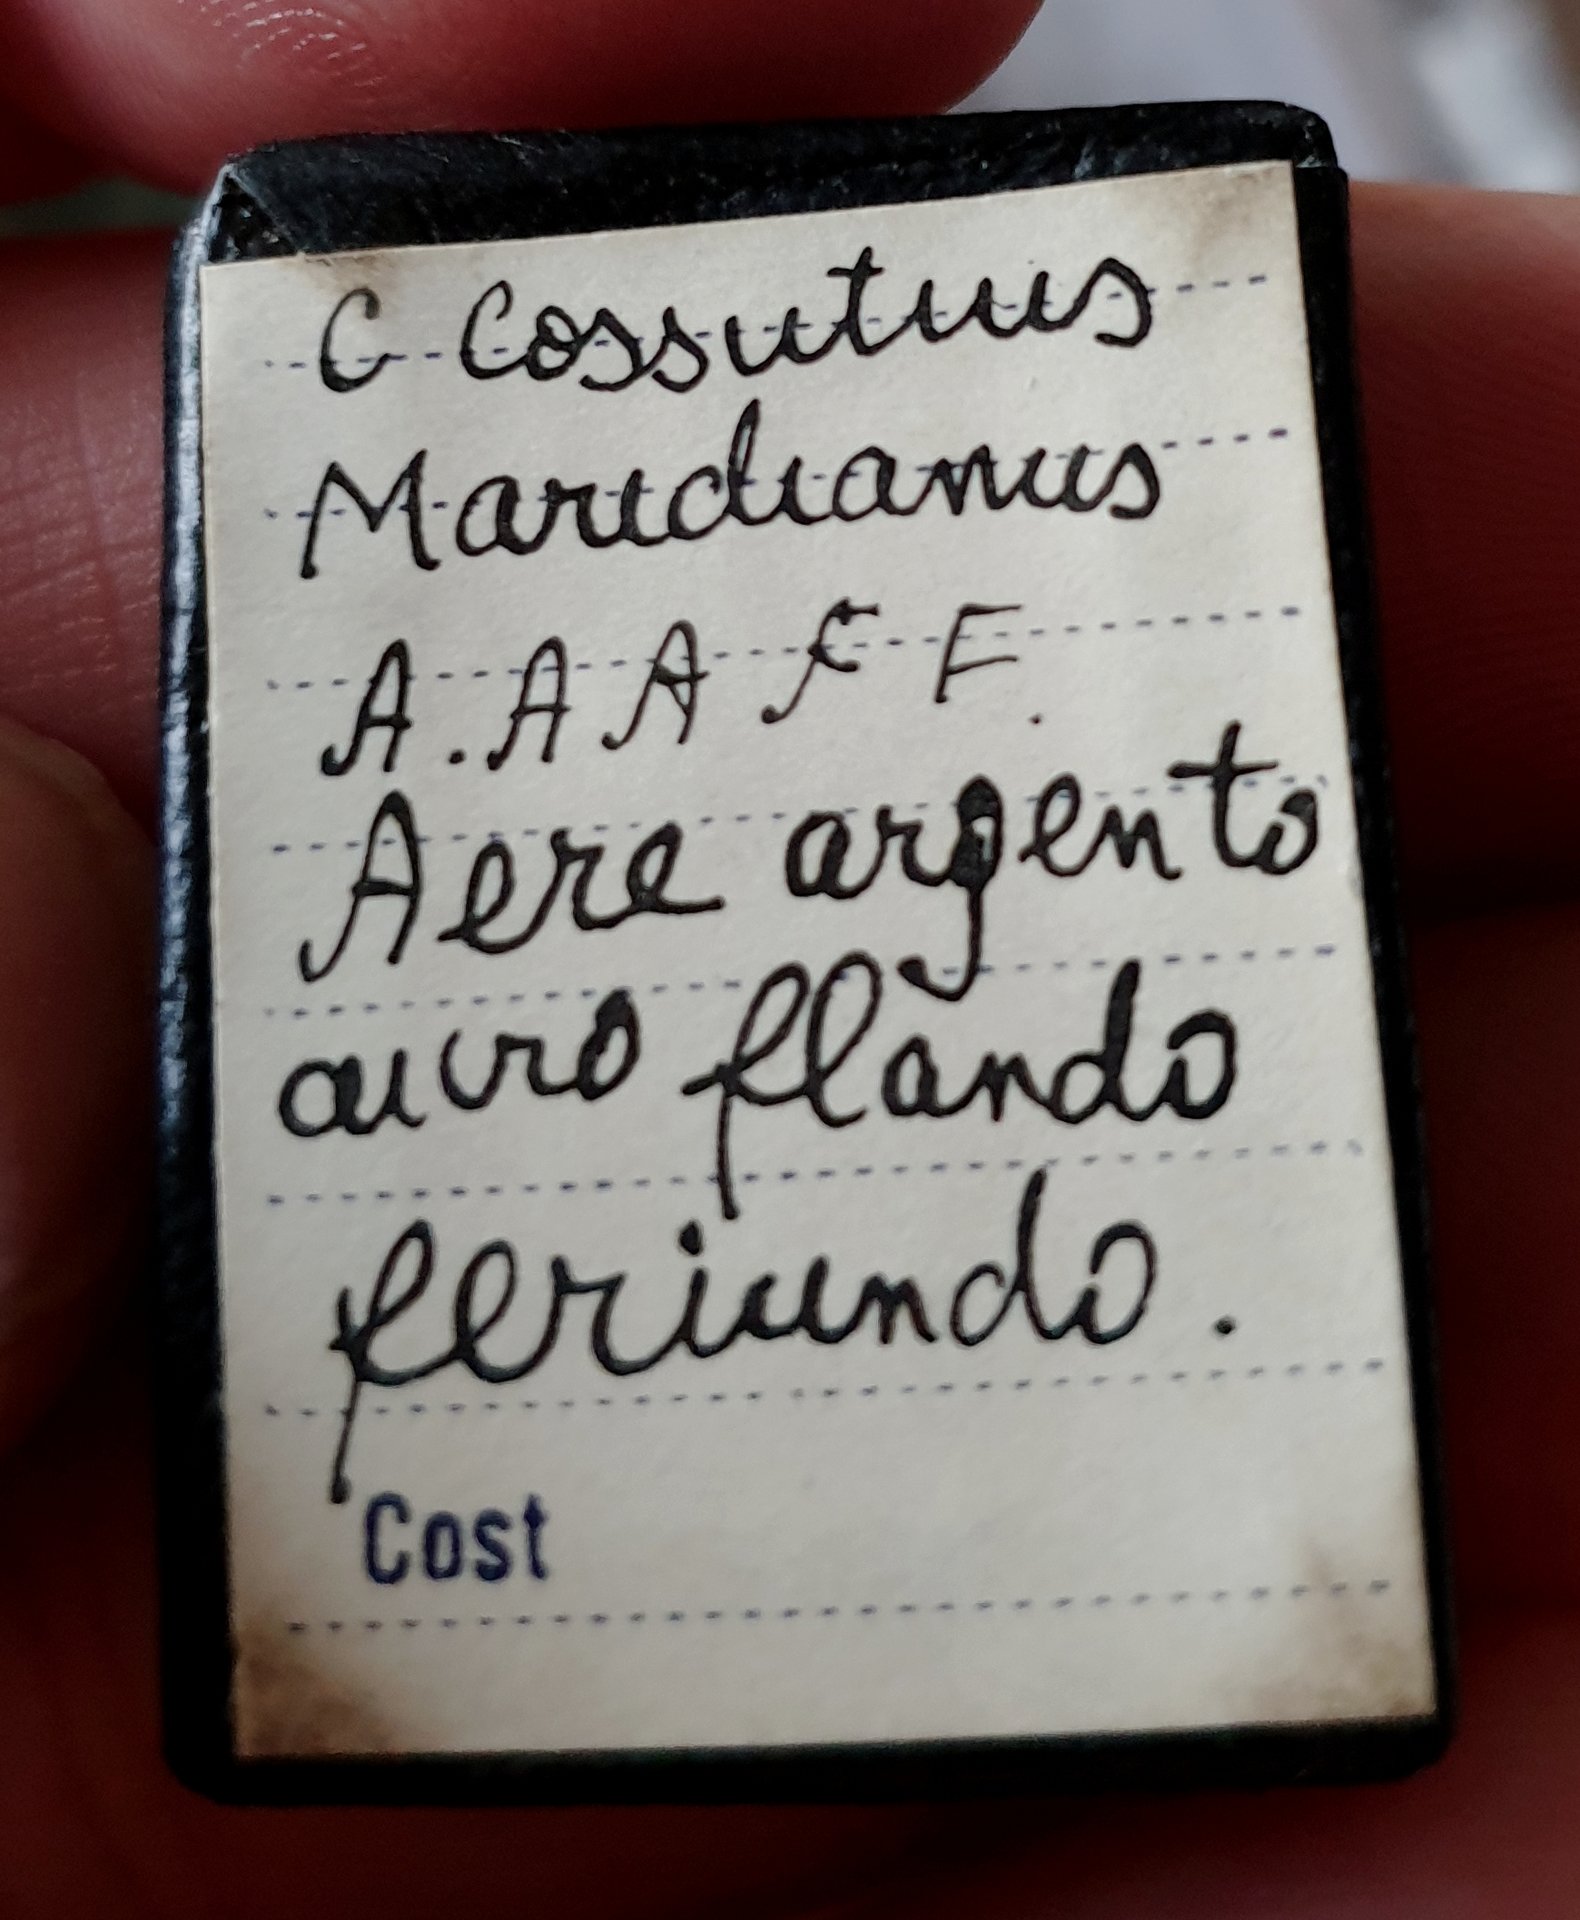 C Cossutius
Maridianus
A. A A F F.
Aere argento
auro flando
feriundo.
Cost